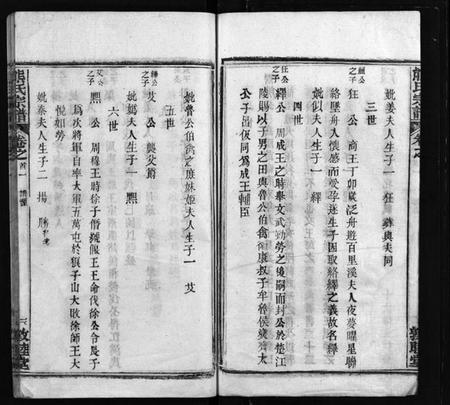 妣姜夫人生子一 狂 葬與夫同
三世
狂公 商王丁卯歲泛舟遊百里溪夫人夜夢曜星聯
絡墜舟入懷感而受孕遂生子因取絡繹之義故名繹
妣似夫人生子一 繹
四世
狂公之子
繹公 周成王之時舉文武勤勞之後嗣而封公於楚江
陵賜以子男之田與魯公伯禽衛康叔子牟晉侯燮齊太
公子呂伋同為成王輔臣
妣魯公伯禽之庶妹姬夫人生子一 艾
五世
繹公之子
艾公 與父爵
妣夫人生子一 䵣
六世
艾公之子
䵣公 周穆王時徐子僭稱偃王王命伐徐公令長子
為次將軍自率大軍五萬屯於狼子山大敗徐師王大
悅加勞
妣泰夫人生子二 揚 勝
熊氏宗譜
卷之首
六
敦睦堂